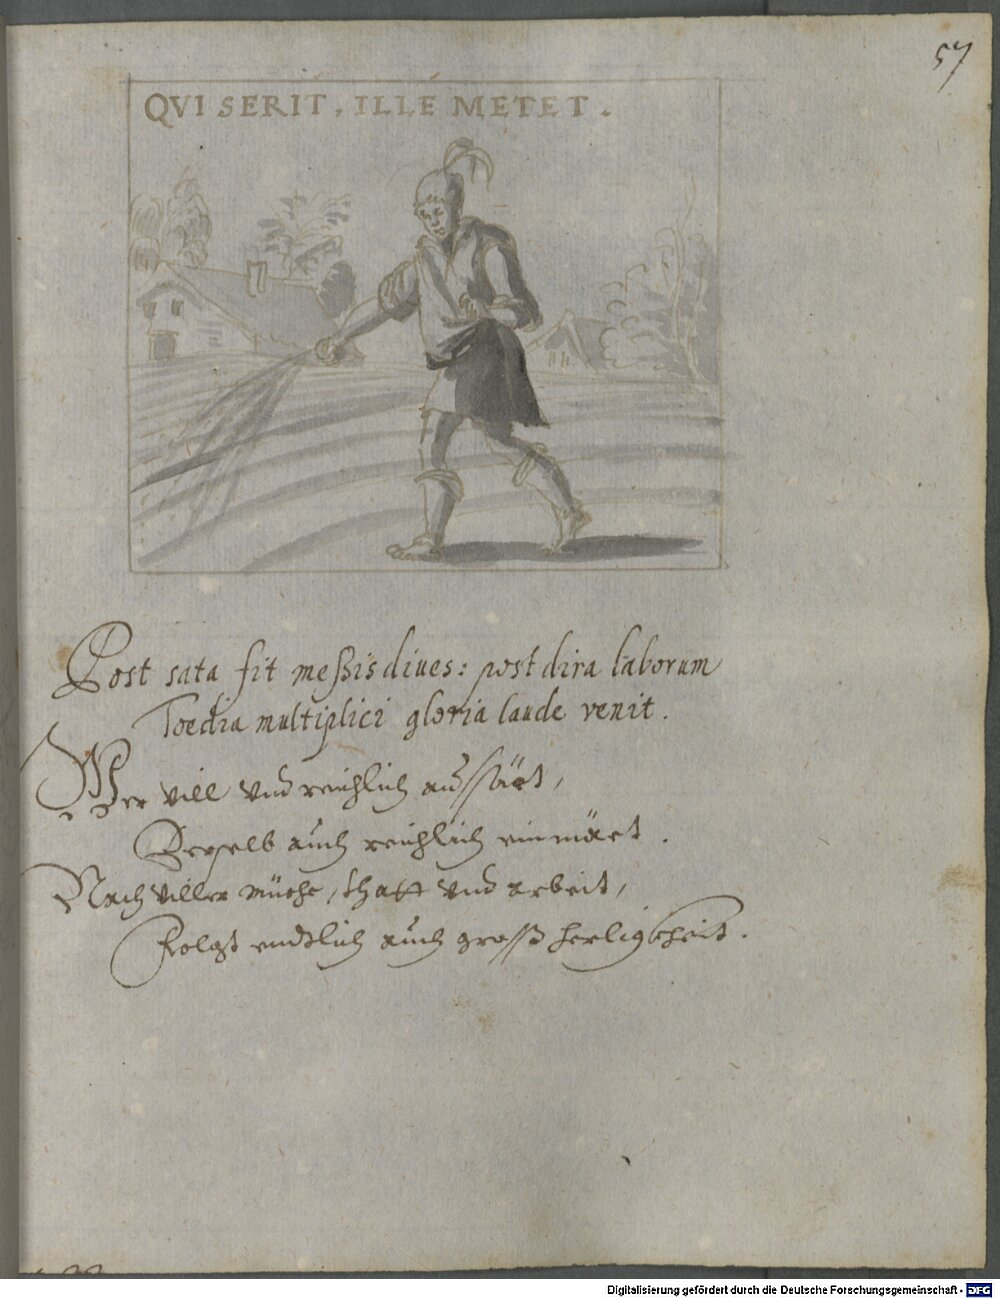 57
QVI SERIT, ILLE METET.
Post sata fit meßis diues: post dira laborum
Toedia multiplici gloria laude venit.
Wer vill vnd reichlich aussäet,
Derselb auch reichlich einmäet.
Nach viller müehe, vnd arbeit,
Folgt endtlich auch gross herligkheit.
Digitalisierung gefördert durch die Deutsche Forschungsgemeinschaft - DFG